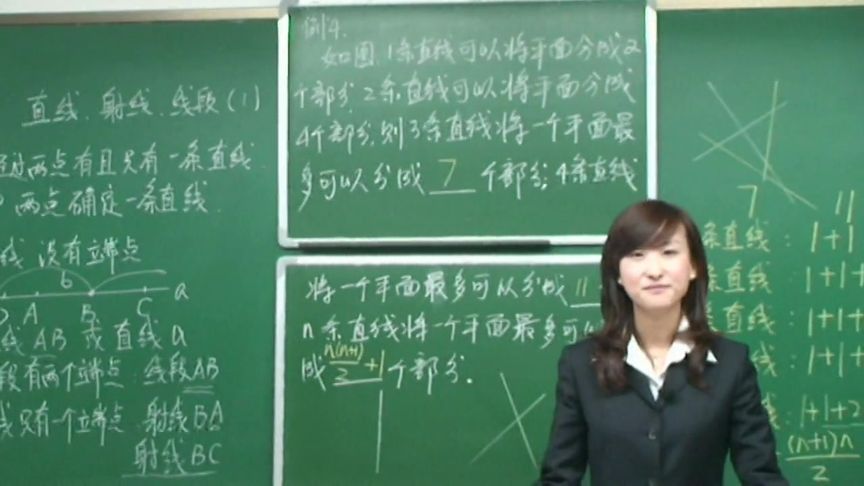 直线、射线、线段(1)
过两点有且只有一条直线.
两点确定一条直线.
线 没有端点
b
A B C a
线AB 或直线a
段有两个端点:线段AB
线只有一个端点:射线BA
射线BC
例4.
如图,1条直线可以将平面分成2
个部分,2条直线可以将平面分成
4个部分,则3条直线将一个平面最
多可以分成 7 个部分;4条直线
将一个平面最多可以分成 11
n条直线将一个平面最多可
成 n(n+1)/2 +1 个部分.
7 11
条直线:1+1
条直线:1+1+
条直线:1+1+
线:1+1+
:1+1+2+
(n+1)n
2